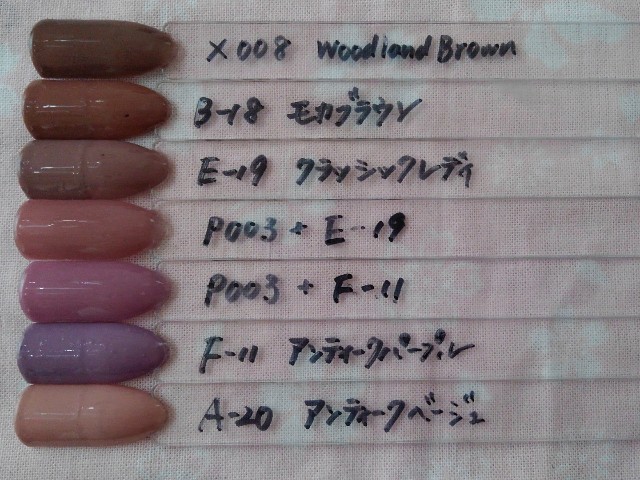 X008 Woodland Brown
B-18 モカブラウン
E-19 クラッシックレディ
P003 + E-19
P003 + F-11
F-11 アンティークパープル
A-20 アンティークベージュ